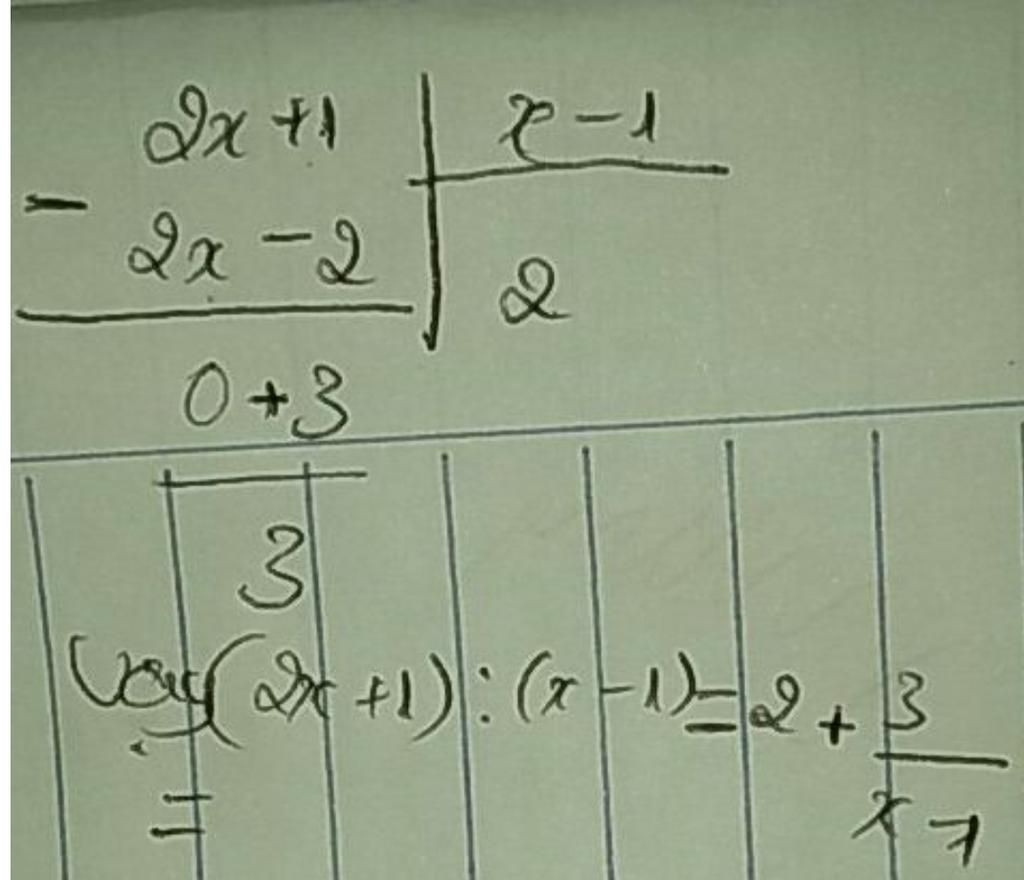 2x +1 | x - 1
- 2x - 2 | 2
0 + 3
3
Vậy (2x +1) : (x - 1) = 2 + 3/(x - 1)
=